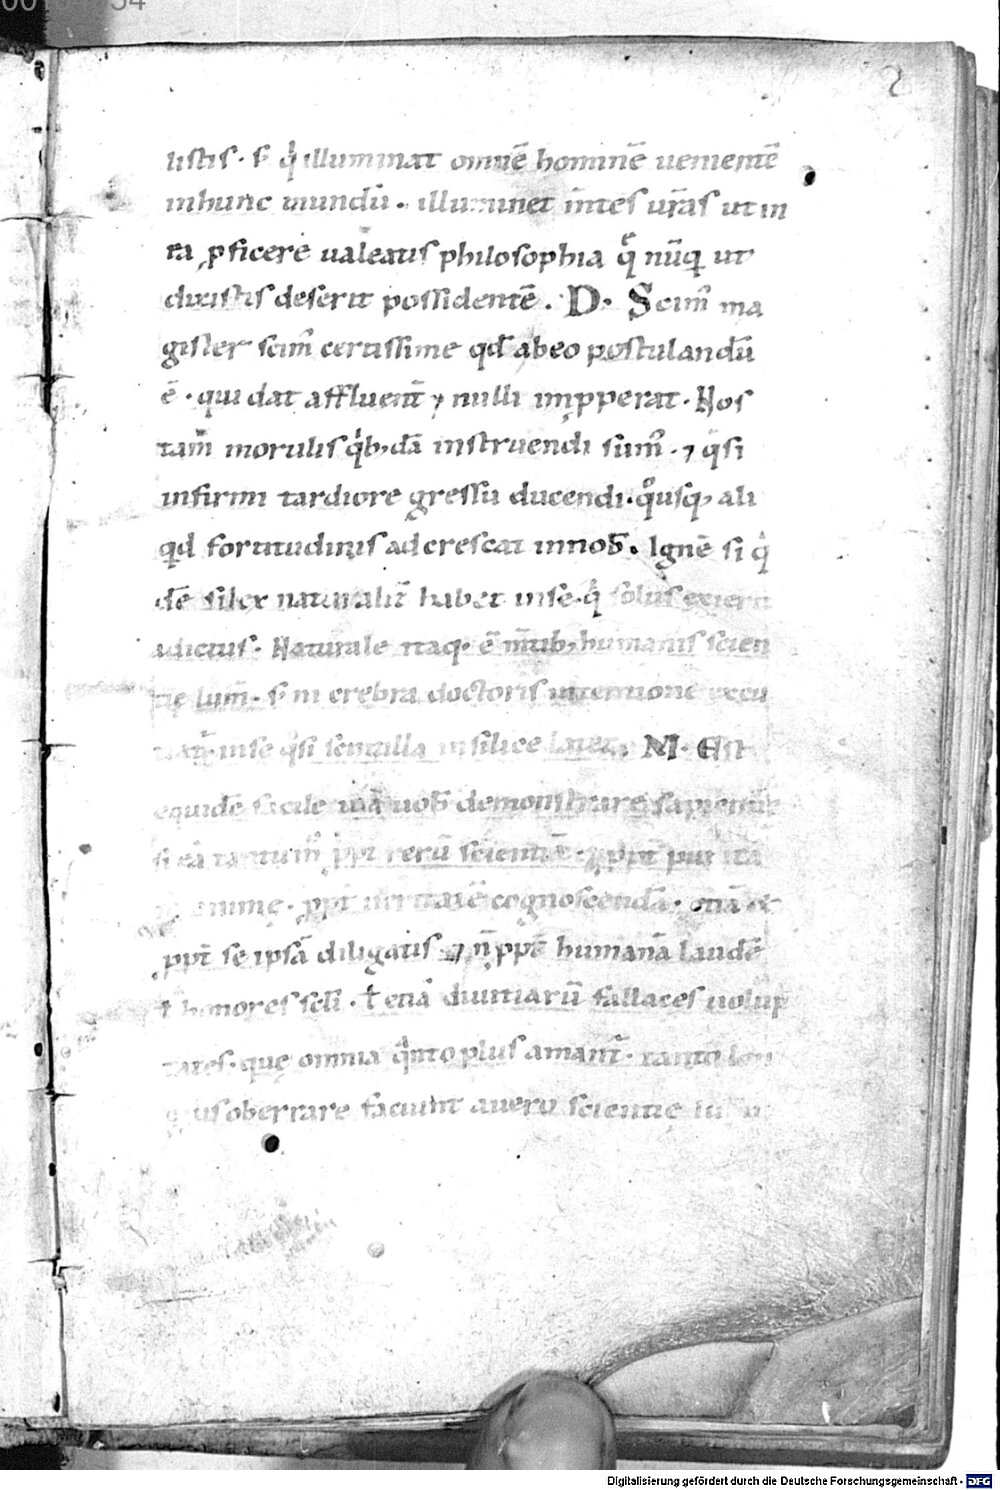 2
listis · s̄ q̓ illuminat omnē hominē uenientē
inhunc mundū . illuminet m̄tes ur̄as ut in
ea ꝓficere ualeatis philosophia q̄ nūq̄ ut
dixistis deserit possidentē . D · Scim᷒ ma
gister scim᷒ certissime qd̄ abeo postulandū
ē · qui dat affluent̄ ⁊ nulli imꝓperat · Nos
tam̄ morulis q̓b;dā instruendi sum᷒ · ⁊ q̄si
infirmi tardiore gressu ducendi · q̊usq; ali
qd fortitudinis ad crescat in nob̄ . Ignē si q̓
dē silex naturalit̄ habet inse · q̓ solus exierit
adictus · Naturale itaq; ē m̄tib; humanis scien
tię lum̄ · s̄ ni crebra doctoris intentione excu
inse q̄si scintilla in silice latet . M · Est
equidē facile uiā uob̄ demonstrare sapientię
si eā tantum̄ ꝓpt̄ rerū scientiā · ꝓpt̄ puritā
animę · ꝓpt̄ ueritatē cognoscendā · etiā &
ꝓpt̄ se ipsā diligatis ⁊ n̄ ꝓpt̄ humanā laudē
ł honores scli̅ · ł etiā diuitiarū fallaces uolup
tates · quę omnia q̄nto plus amant̄ · tanto lon
gius oberrare faciunt aueru scientię
Digitalisierung gefördert durch die Deutsche Forschungsgemeinschaft - DFG